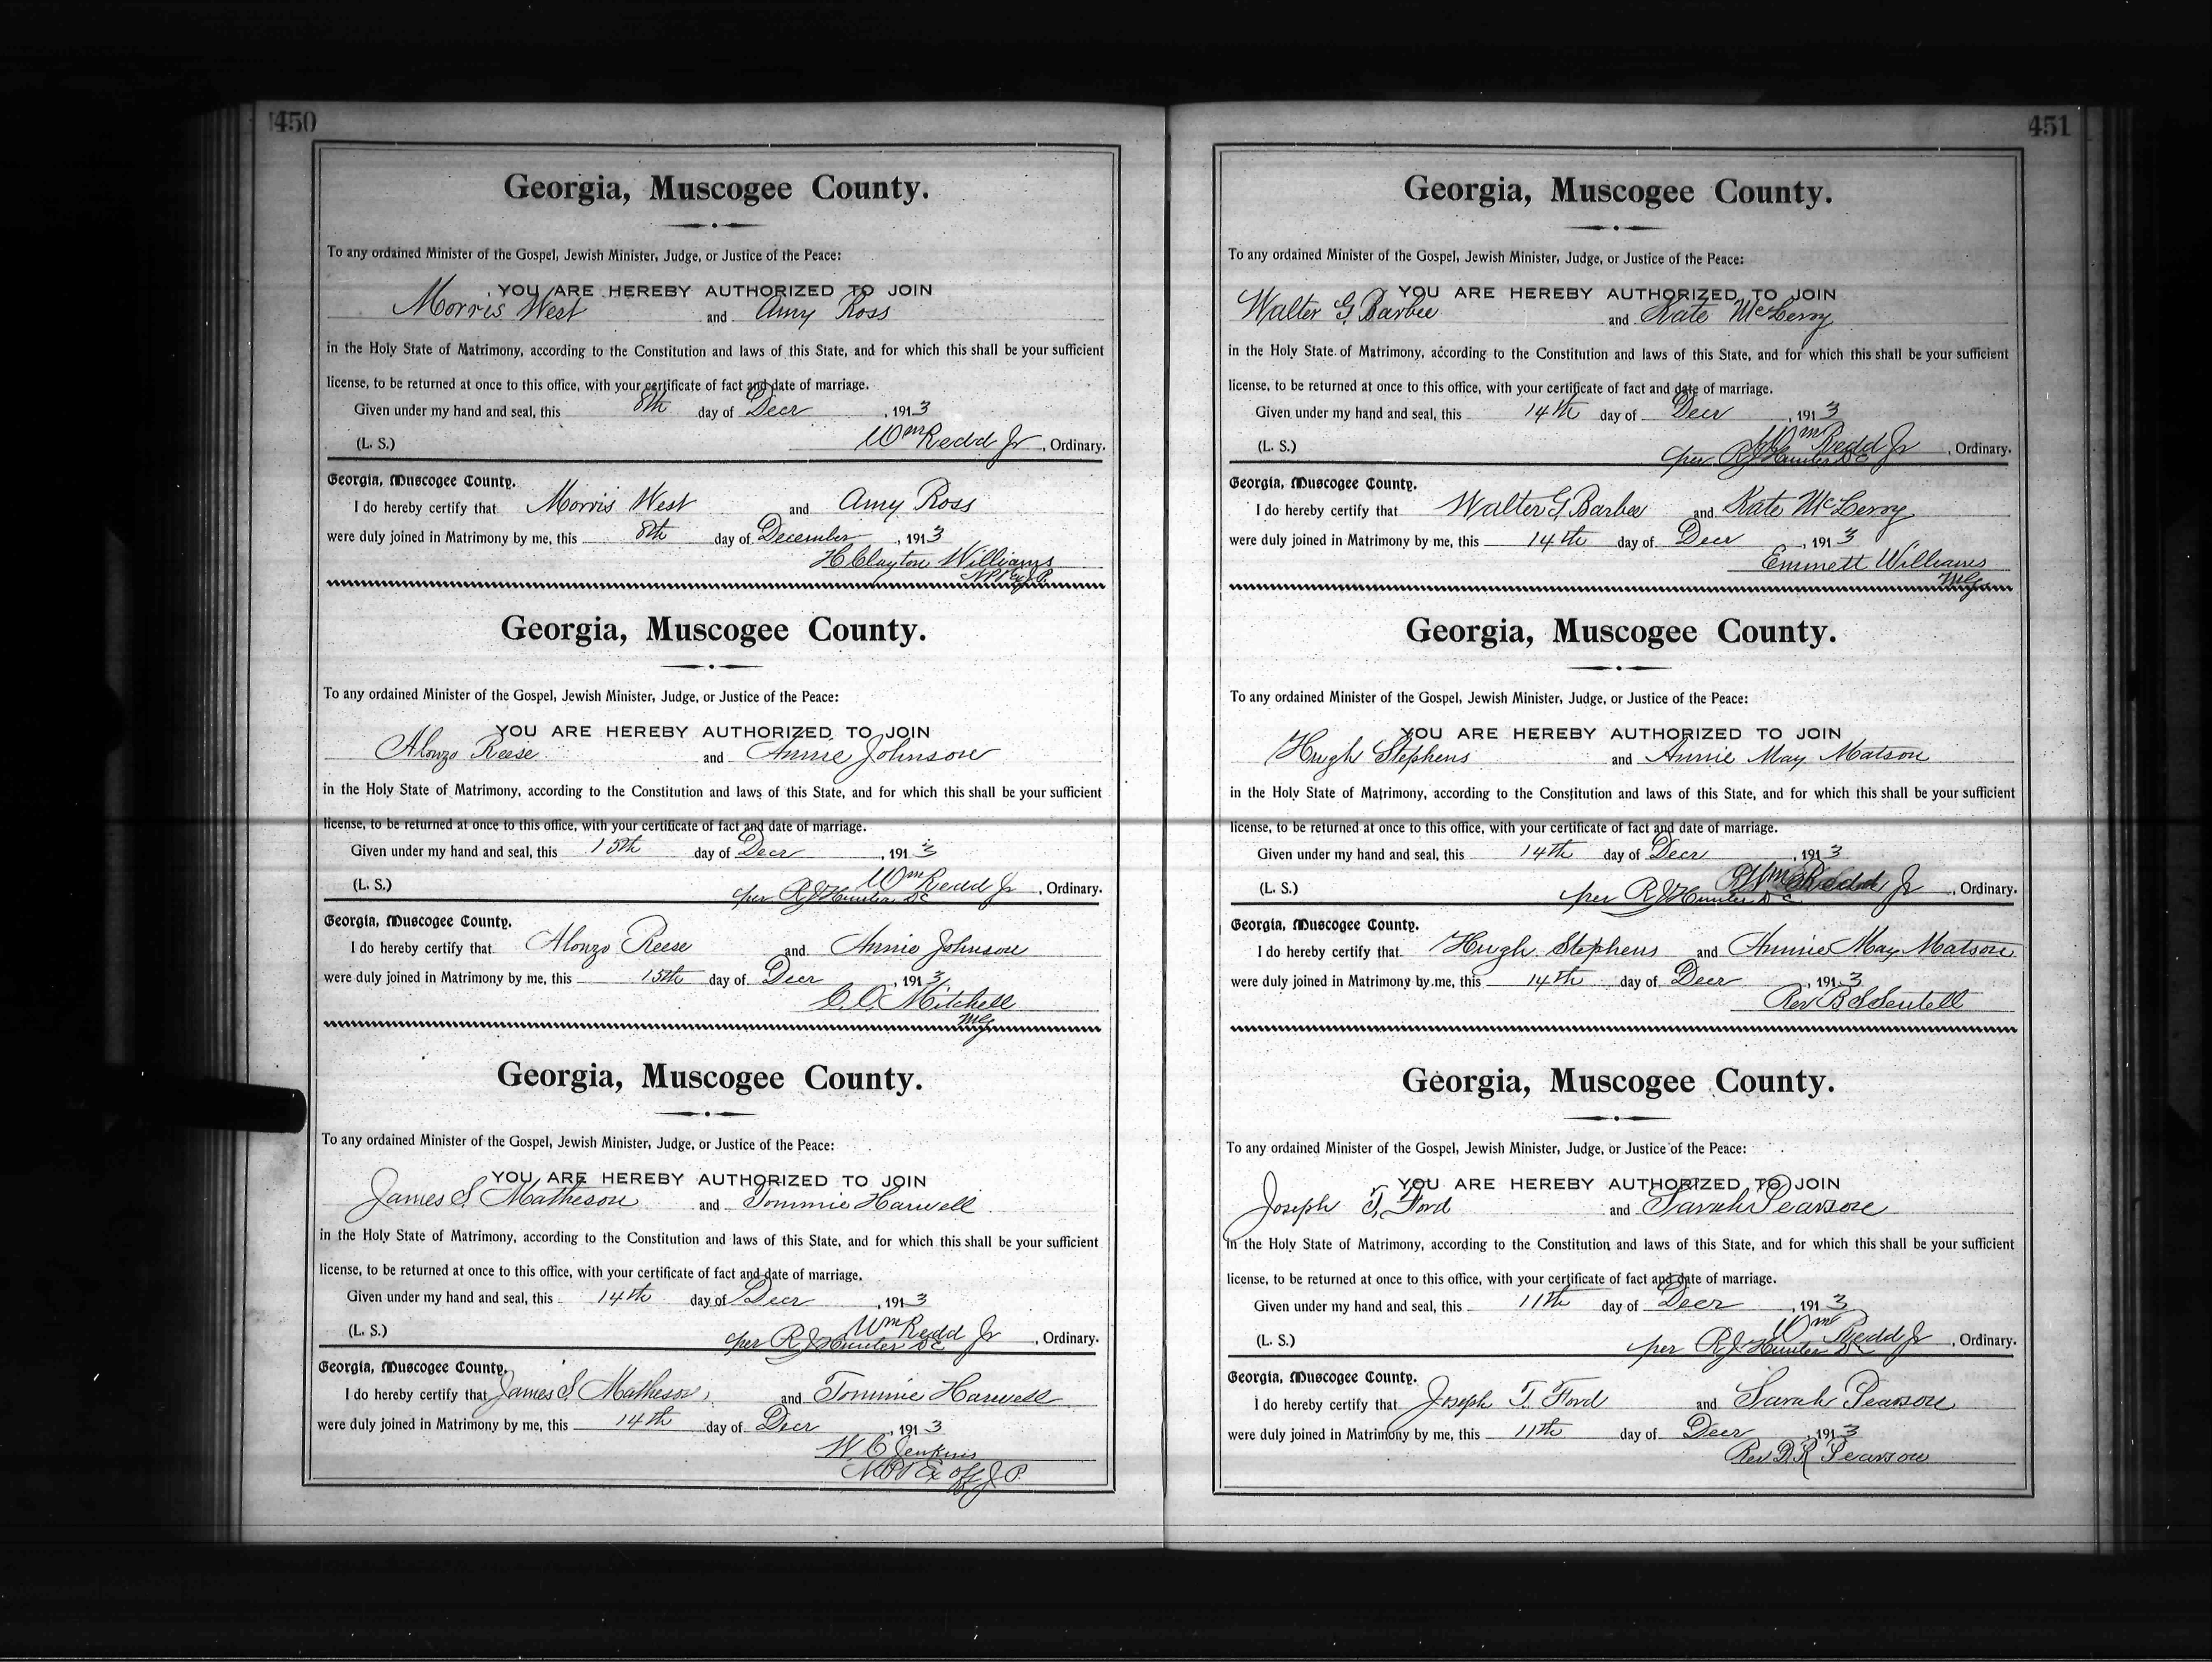 450
Georgia, Muscogee County.
To any ordained Minister of the Gospel, Jewish Minister, Judge, or Justice of the Peace:
YOU ARE HEREBY AUTHORIZED TO JOIN
Morris West and Amy Ross
in the Holy State of Matrimony, according to the Constitution and laws of this State, and for which this shall be your sufficient
license, to be returned at once to this office, with your certificate of fact and date of marriage.
Given under my hand and seal, this 8th day of Decr, 1913
(L. S.) Wm Redd Jr, Ordinary.
Georgia, Muscogee County.
I do hereby certify that Morris West and Amy Ross
were duly joined in Matrimony by me, this 8th day of December, 1913
H Clayton Williams
Georgia, Muscogee County.
To any ordained Minister of the Gospel, Jewish Minister, Judge, or Justice of the Peace:
YOU ARE HEREBY AUTHORIZED TO JOIN
Alonzo Reese and Annie Johnson
in the Holy State of Matrimony, according to the Constitution and laws of this State, and for which this shall be your sufficient
license, to be returned at once to this office, with your certificate of fact and date of marriage.
Given under my hand and seal, this 15th day of Decr, 1913
(L. S.) Wm Redd Jr, Ordinary.
per R J Hunter D C
Georgia, Muscogee County.
I do hereby certify that Alonzo Reese and Annie Johnson
were duly joined in Matrimony by me, this 15th day of Decr, 1913
C. C. Mitchell
MG
Georgia, Muscogee County.
To any ordained Minister of the Gospel, Jewish Minister, Judge, or Justice of the Peace:
YOU ARE HEREBY AUTHORIZED TO JOIN
James S. Matheson and Tommie Harwell
in the Holy State of Matrimony, according to the Constitution and laws of this State, and for which this shall be your sufficient
license, to be returned at once to this office, with your certificate of fact and date of marriage.
Given under my hand and seal, this 14th day of Decr, 1913
(L. S.) Wm Redd Jr, Ordinary.
per R J Hunter D C
Georgia, Muscogee County.
I do hereby certify that James S. Matheson, and Tommie Harwell
were duly joined in Matrimony by me, this 14th day of Decr, 1913
W C Jenkins
N P & Ex off J. P.
451
Georgia, Muscogee County.
To any ordained Minister of the Gospel, Jewish Minister, Judge, or Justice of the Peace:
YOU ARE HEREBY AUTHORIZED TO JOIN
Walter G. Barbee and Kate McLeroy
in the Holy State of Matrimony, according to the Constitution and laws of this State, and for which this shall be your sufficient
license, to be returned at once to this office, with your certificate of fact and date of marriage.
Given under my hand and seal, this 14th day of Decr, 1913
(L. S.) Wm Redd Jr, Ordinary.
per R J Hunter D C
Georgia, Muscogee County.
I do hereby certify that Walter G Barbee and Kate McLeroy
were duly joined in Matrimony by me, this 14th day of Decr, 1913
Emmett Williams
MG
Georgia, Muscogee County.
To any ordained Minister of the Gospel, Jewish Minister, Judge, or Justice of the Peace:
YOU ARE HEREBY AUTHORIZED TO JOIN
Hugh Stephens and Annie May Matson
in the Holy State of Matrimony, according to the Constitution and laws of this State, and for which this shall be your sufficient
license, to be returned at once to this office, with your certificate of fact and date of marriage.
Given under my hand and seal, this 14th day of Decr, 1913
(L. S.) Wm Redd Jr, Ordinary.
per R J Hunter D C
Georgia, Muscogee County.
I do hereby certify that Hugh Stephens and Annie May Matson
were duly joined in Matrimony by me, this 14th day of Decr, 1913
Rev B S Sentell
Georgia, Muscogee County.
To any ordained Minister of the Gospel, Jewish Minister, Judge, or Justice of the Peace:
YOU ARE HEREBY AUTHORIZED TO JOIN
Joseph T. Ford and Sarah Pearson
in the Holy State of Matrimony, according to the Constitution and laws of this State, and for which this shall be your sufficient
license, to be returned at once to this office, with your certificate of fact and date of marriage.
Given under my hand and seal, this 11th day of Decr, 1913
(L. S.) Wm Redd Jr, Ordinary.
per R J Hunter D C
Georgia, Muscogee County.
I do hereby certify that Joseph T. Ford and Sarah Pearson
were duly joined in Matrimony by me, this 11th day of Decr, 1913
Rev D. R Pearson